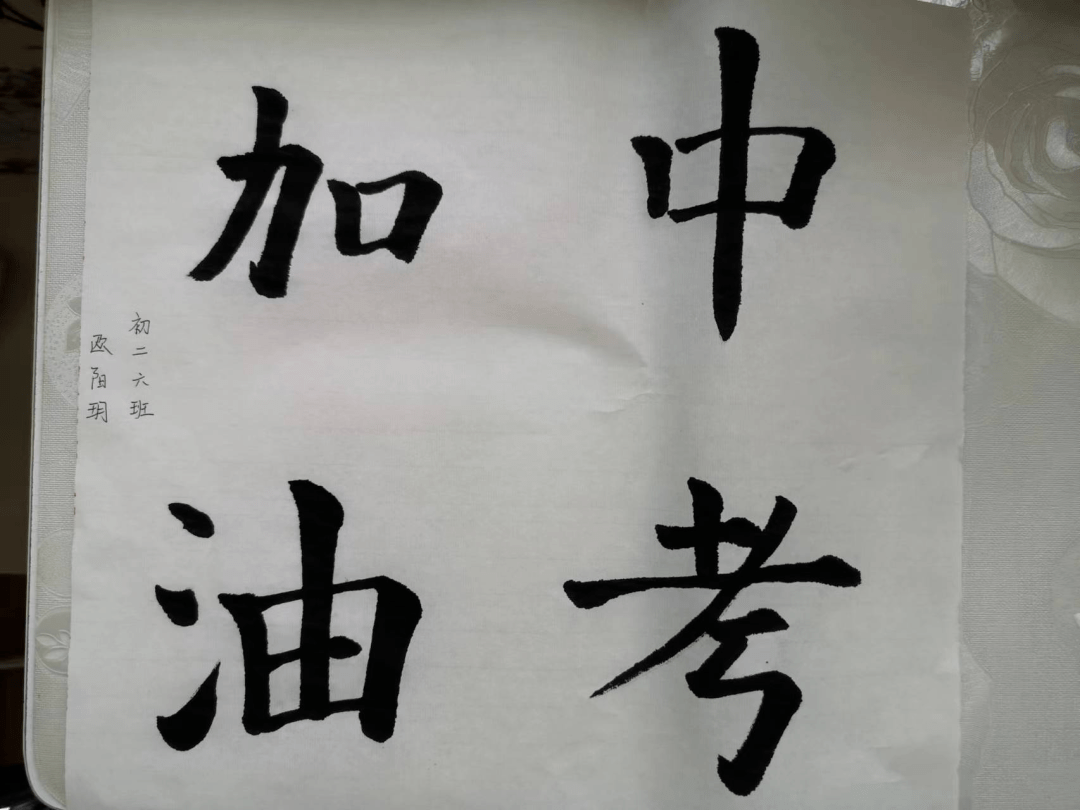 中考
加油
初二六班
欧阳玥